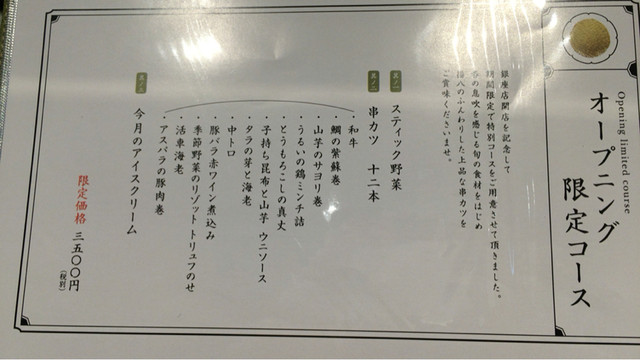 Opening limited course
オープニング
限定コース
銀座店開店を記念して
期間限定で特別コースをご用意させて頂きました。
春の息吹を感じる旬の食材をはじめ
ふんわりした上品な串カツを
ご賞味くださいませ。
其ノ一
スティック野菜
其ノ二
串カツ 十二本
・和牛
・鯛の紫蘇巻
・山芋のサヨリ巻
・うるいの鶏ミンチ詰
・とうもろこしの真丈
・子持ち昆布と山芋 ウニソース
・タラの芽と海老
・中トロ
・豚バラ赤ワイン煮込み
・季節野菜のリゾット トリュフのせ
・活車海老
・アスパラの豚肉巻
今月のアイスクリーム
限定価格 三五〇〇円
(税別)